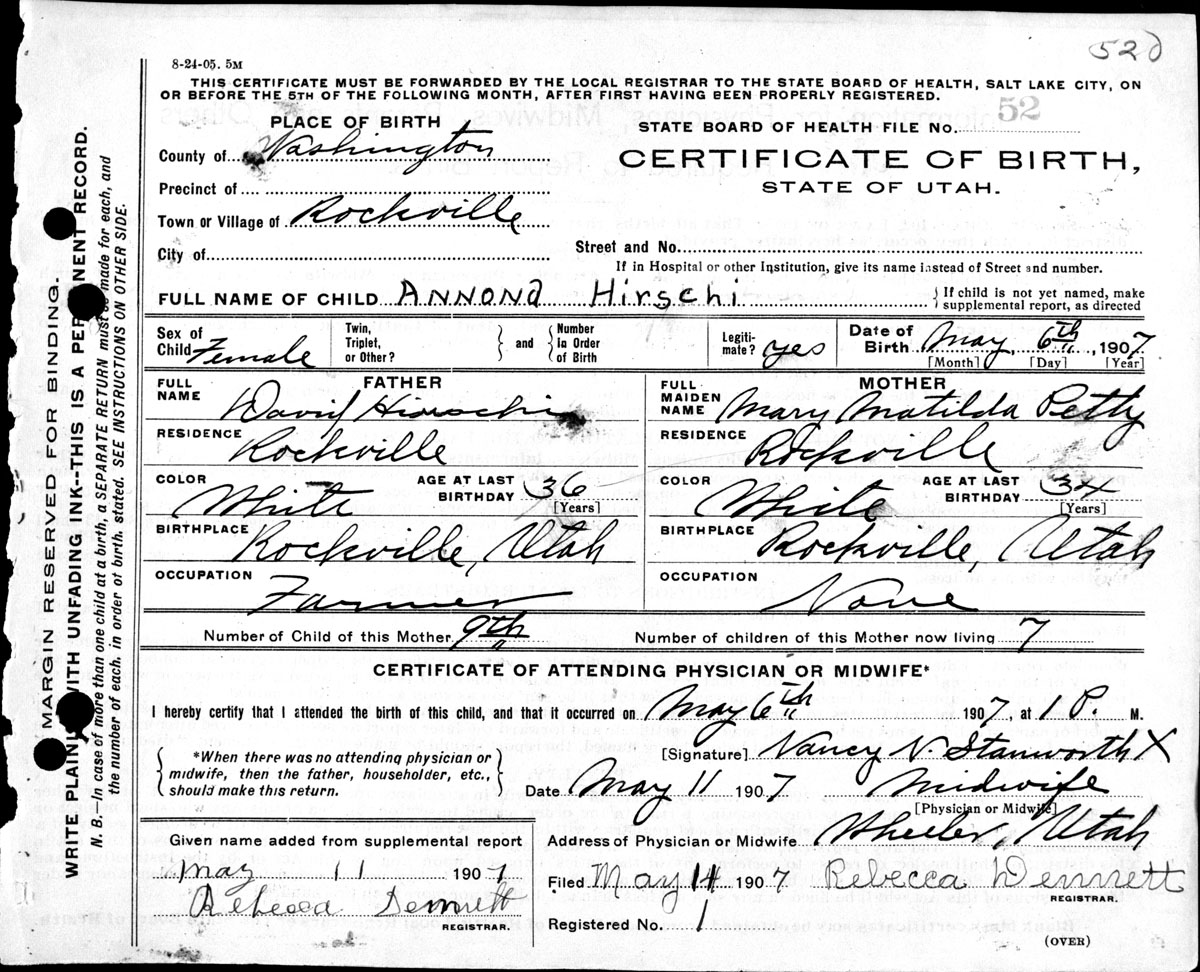 520
8-24-05. 5M
THIS CERTIFICATE MUST BE FORWARDED BY THE LOCAL REGISTRAR TO THE STATE BOARD OF HEALTH, SALT LAKE CITY, ON
OR BEFORE THE 5TH OF THE FOLLOWING MONTH, AFTER FIRST HAVING BEEN PROPERLY REGISTERED.
PLACE OF BIRTH
STATE BOARD OF HEALTH FILE No. 52
County of Washington
CERTIFICATE OF BIRTH,
STATE OF UTAH.
Precinct of
Town or Village of Rockville
City of
Street and No.
If in Hospital or other Institution, give its name instead of Street and number.
FULL NAME OF CHILD Annona Hirschi
{ If child is not yet named, make
supplemental report, as directed
Sex of Child Female
Twin, Triplet, or Other? } and { Number In Order of Birth
Legiti-mate? yes
Date of Birth May, 6th, 1907
[Month] [Day] [Year]
FATHER
FULL NAME David Hirschi
RESIDENCE Rockville
COLOR White
AGE AT LAST BIRTHDAY 36
[Years]
BIRTHPLACE Rockville, Utah
OCCUPATION Farmer
MOTHER
FULL MAIDEN NAME Mary Matilda Petty
RESIDENCE Rockville
COLOR White
AGE AT LAST BIRTHDAY 34
[Years]
BIRTHPLACE Rockville, Utah
OCCUPATION None
Number of Child of this Mother 9th
Number of children of this Mother now living 7
CERTIFICATE OF ATTENDING PHYSICIAN OR MIDWIFE*
I hereby certify that I attended the birth of this child, and that it occurred on May 6th 1907, at 1 P. M.
{ *When there was no attending physician or
midwife, then the father, householder, etc.,
should make this return. }
[Signature] Nancy N. Stanworth X
Date May 11 1907 Midwife
[Physician or Midwife]
Address of Physician or Midwife Wheeler, Utah
Given name added from supplemental report
May 11 1907
Rebecca Dennett
REGISTRAR.
Filed May 14 1907 Rebecca Dennett
REGISTRAR.
Registered No. 1
(OVER)
MARGIN RESERVED FOR BINDING.
WRITE PLAINLY WITH UNFADING INK--THIS IS A PERMANENT RECORD.
N. B.—In case of more than one child at a birth, a SEPARATE RETURN must be made for each, and
the number of each, in order of birth, stated. SEE INSTRUCTIONS ON OTHER SIDE.